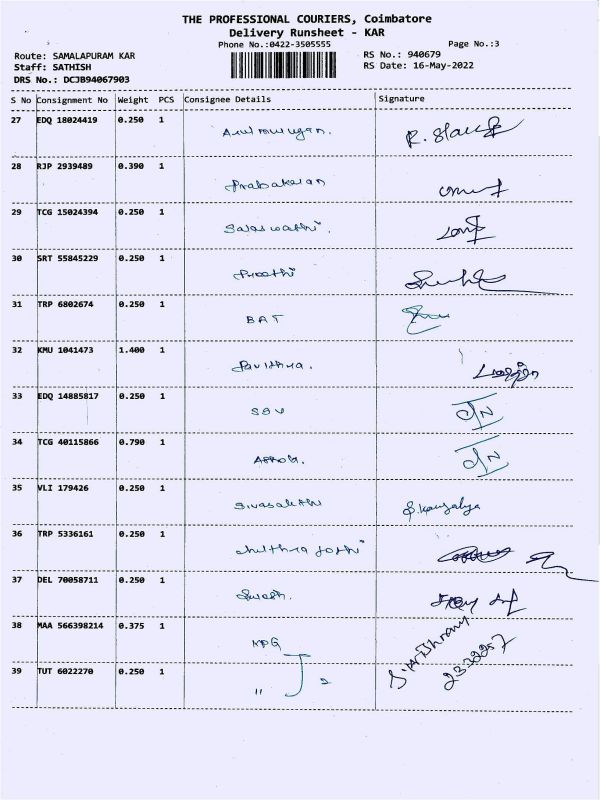 THE PROFESSIONAL COURIERS, Coimbatore
Delivery Runsheet - KAR
Phone No.:0422-3505555 Page No.:3
Route: SAMALAPURAM KAR RS No.: 940679
Staff: SATHISH RS Date: 16-May-2022
DRS No.: DCJB94067903
S No Consignment No Weight PCS Consignee Details Signature
27 EDQ 18024419 0.250 1
Arul murugan.
28 RJP 2939489 0.390 1
Prabakaran
29 TCG 15024394 0.250 1
Saraswathi.
30 SRT 55845229 0.250 1
Preethi
31 TRP 6802674 0.250 1
BAT
32 KMU 1041473 1.400 1
Pavithra.
33 EDQ 14885817 0.250 1
JN
34 TCG 40115866 0.790 1
Ashok. JN
35 VLI 179426 0.250 1
Sivasakthi S. Kousalya
36 TRP 5336161 0.250 1
37 DEL 70058711 0.250 1
38 MAA 566398214 0.375 1
39 TUT 6022270 0.250 1
" 2